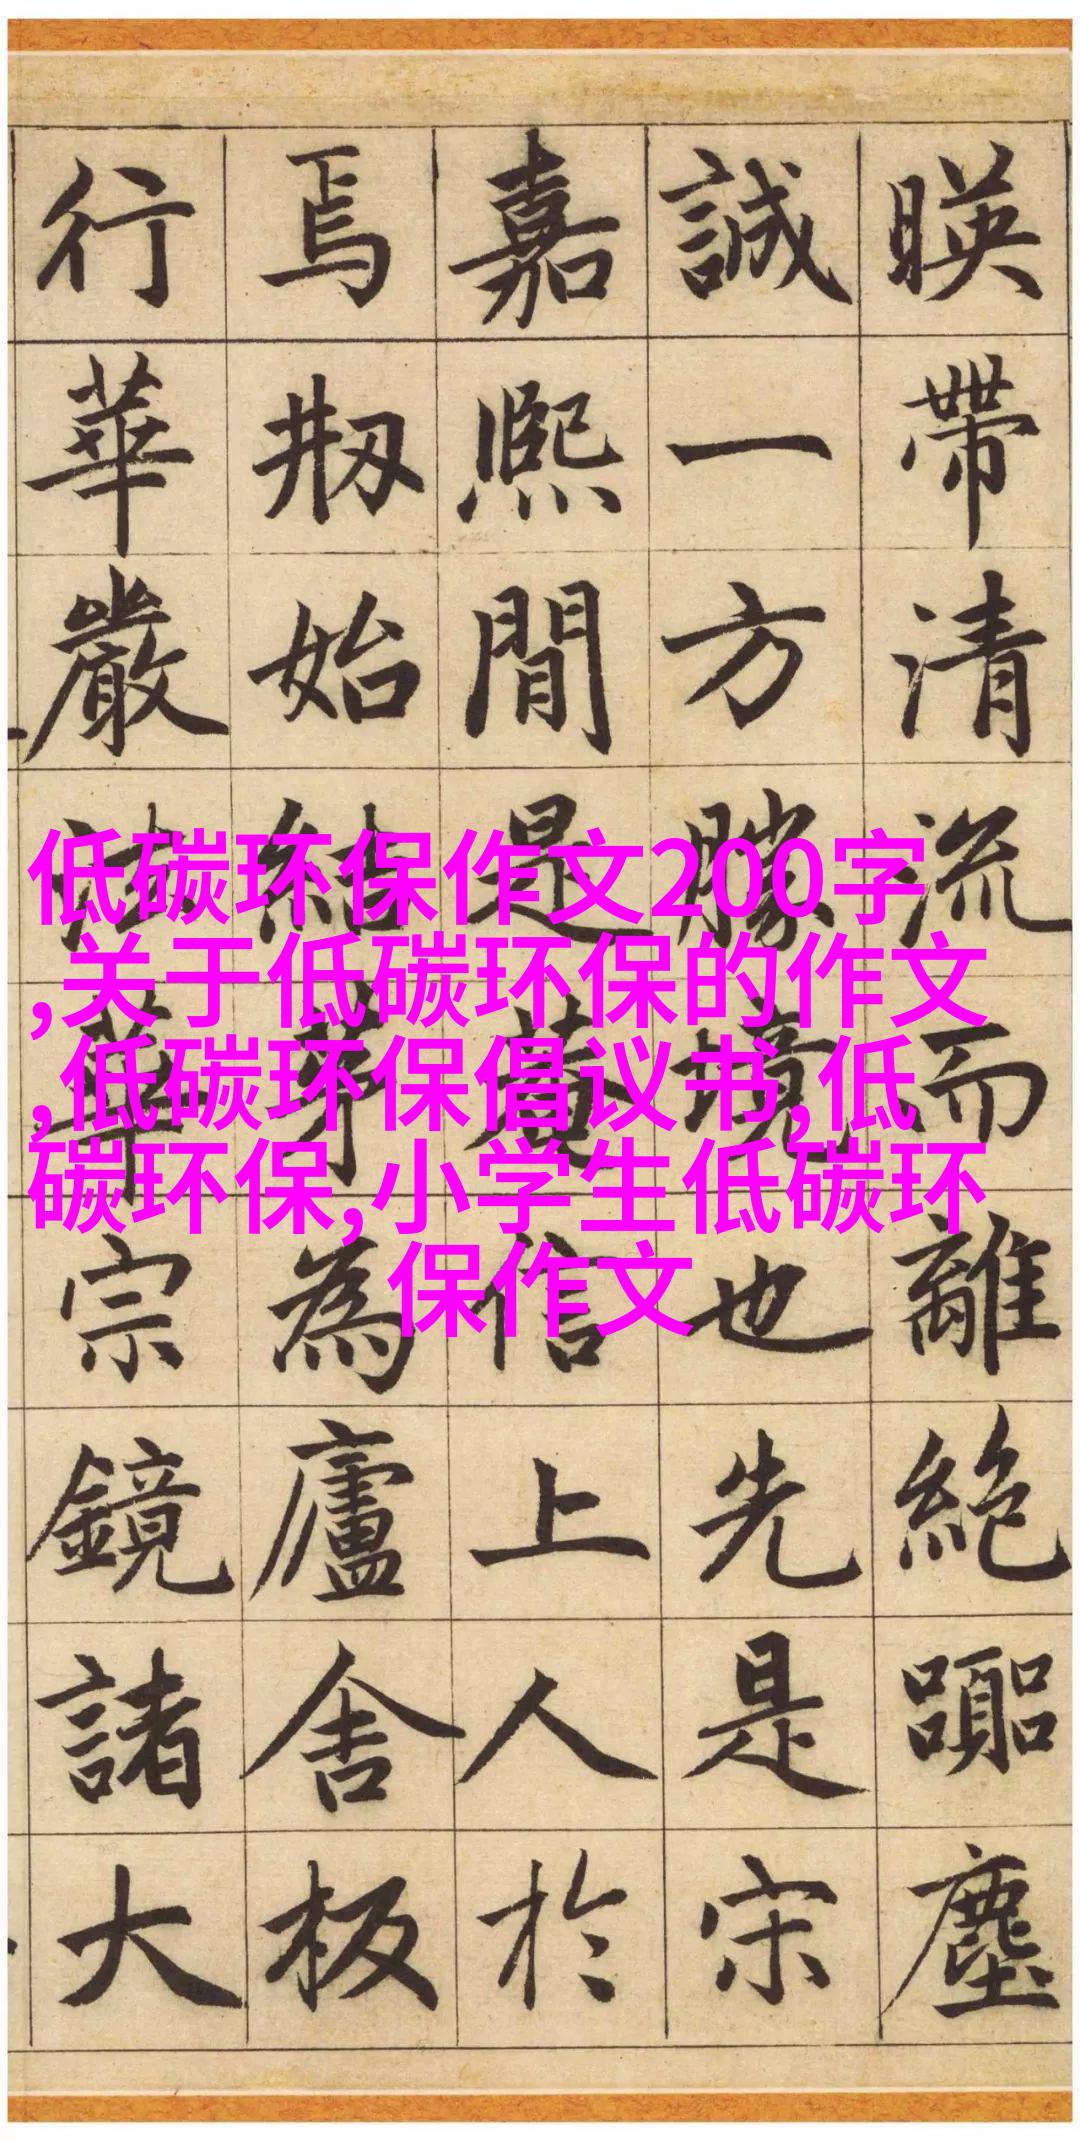 暎帶清流而離絶嚻塵
誠一方勝境也先是宋
嘉熙間是菴信上人於
焉剏始結茅為廬舍板
行華嚴法華宗鏡諸大
低碳环保作文200字
,关于低碳环保的作文
,低碳环保倡议书,低
碳环保,小学生低碳环
保作文